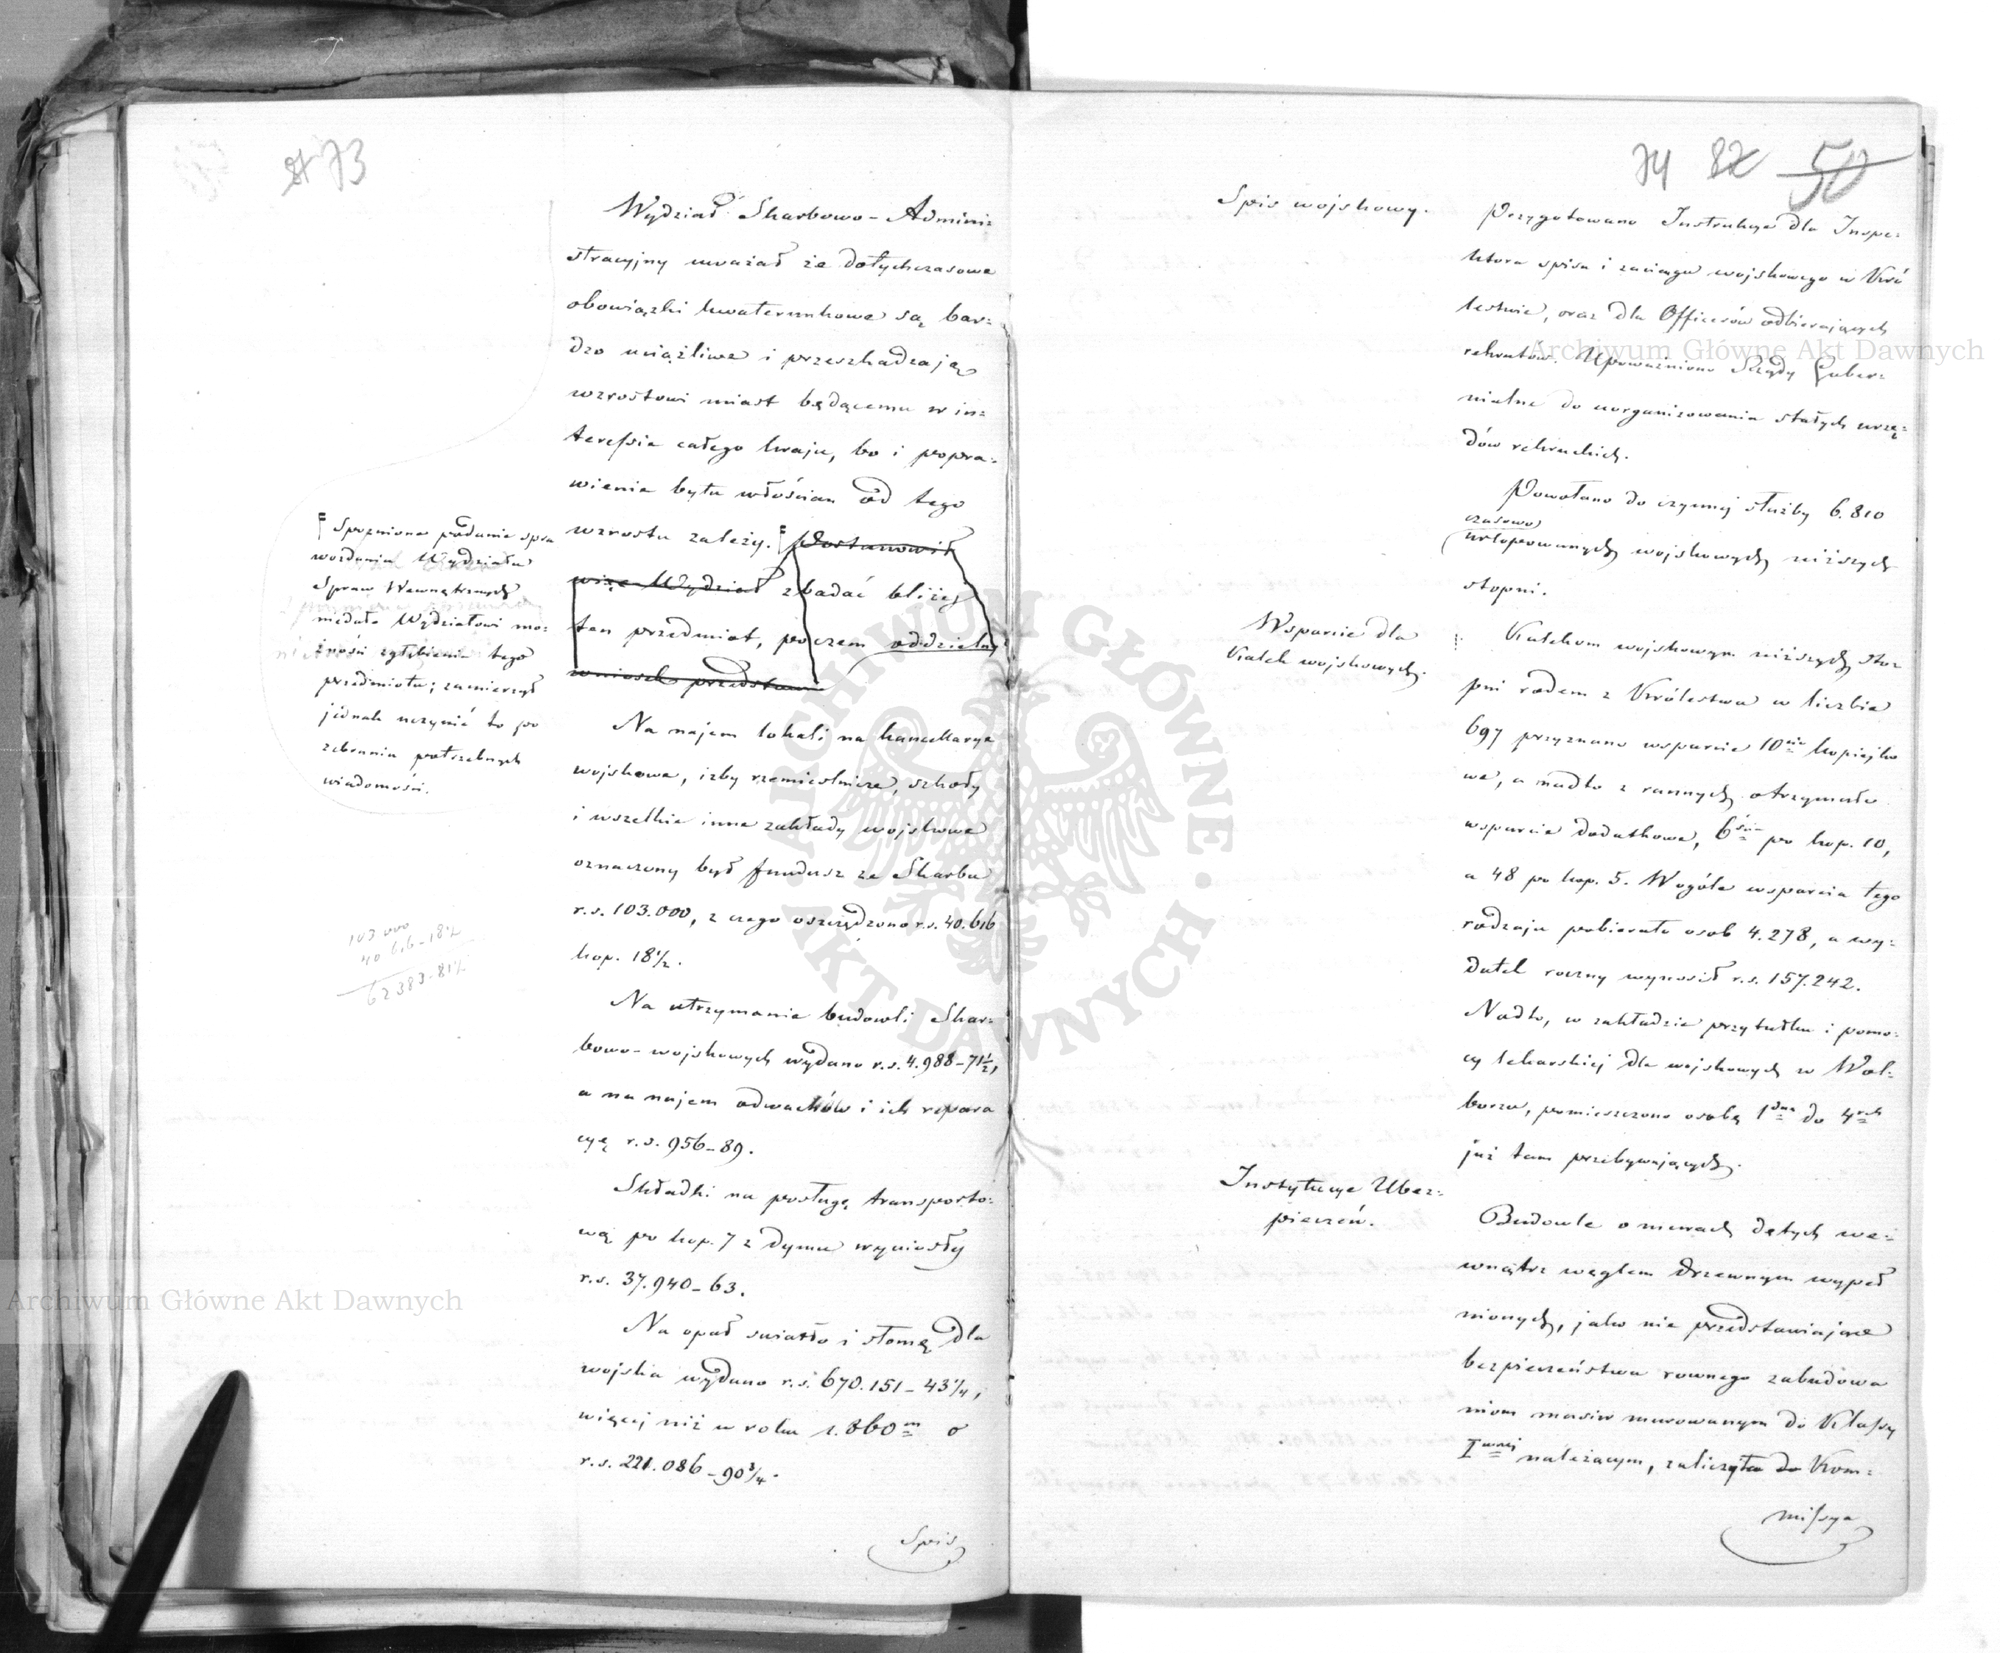 73
Wydział Skarbowo-Admini-
stracyjny uważał że dotychczasowe
obowiązki kwaterunkowe są bar-
dzo uciążliwe i przeszkadzają
wzrostowi miast będącemu w in-
teressie całego kraju, bo i popra-
wienie bytu włościan od tego
wzrostu zależy. Postanowił
więc Wydział zbadać bliżej
ten przedmiot, poczem oddzielny
wniosek przedstawi
Na najem lokali na kancellarye
wojskowe, izby rzemieślnicze, szkoły
i wszelkie inne zakłady wojskowe
oznaczony był fundusz ze Skarbu
r.s. 103.000, z czego oszczędzono r.s. 40.616
kop. 18½.
Na utrzymanie budowli Skar-
bowo-wojskowych wydano r.s. 4.988-71½,
a na najem odwachów i ich repara
cyę r.s. 956-89.
Składki na posługę transporto-
wą po kop. 7 z dymu wyniosły
r.s. 37.940-63.
Na opał światło i słomę dla
wojska wydano r.s. 670.151-43¼,
więcej niż w roku 1.860m o
r.s. 221.086-90¾.
Spis
Spoznione podanie spra
wozdania Wydziału
Spraw Wewnętrznych
niedało Wydziałowi mo-
żności zgłębienia tego
przedmiotu; zamierzył
jednak uczynić to po
zebraniu potrzebnych
wiadomości.
103 000
40 616-18½
62 383-81½
74 82 50
Spis wojskowy.
Przygotowano Instrukcye dla Inspe-
ktora spisu i zaciągu wojskowego w Kró
lestwie, oraz dla Officerów odbierających
rekrutów. Upoważniono Rządy Guber-
nialne do uorganizowania stałych urzę-
dów rekruckich.
Powołano do czynnej służby 6.810
czasowo
urlopowanych wojskowych niższych
stopni.
Wsparcie dla
Kalek wojskowych.
Kalekom wojskowym niższych sto-
pni rodem z Królestwa w liczbie
697 przyznano wsparcie 10cio kopiejko
we, a nadto z rannych otrzymało
wsparcie dodatkowe, 6ciu po kop. 10,
a 48 po kop. 5. Wogóle wsparcia tego
rodzaju pobierało osób 4.278, a wy-
datek roczny wynosił r.s. 157.242.
Nadto, w zakładzie przytułku i pomo-
cy lekarskiej dla wojskowych w Wol-
borzu, pomieszczono osobę 1dną do 4rech
już tam przebywających.
Instytucye Ubez-
pieczeń.
Budowle o murach dętych we-
wnątrz węglem drzewnym wypeł
nionych, jako nie przedstawiające
bezpieczeństwa równego zabudowa
niom masiw murowanym do Klassy
Iwszej należącym, zaliczyła do Kom-
missya
Archiwum Główne Akt Dawnych
Archiwum Główne Akt Dawnych
ARCHIWUM GŁÓWNE
AKT DAWNYCH